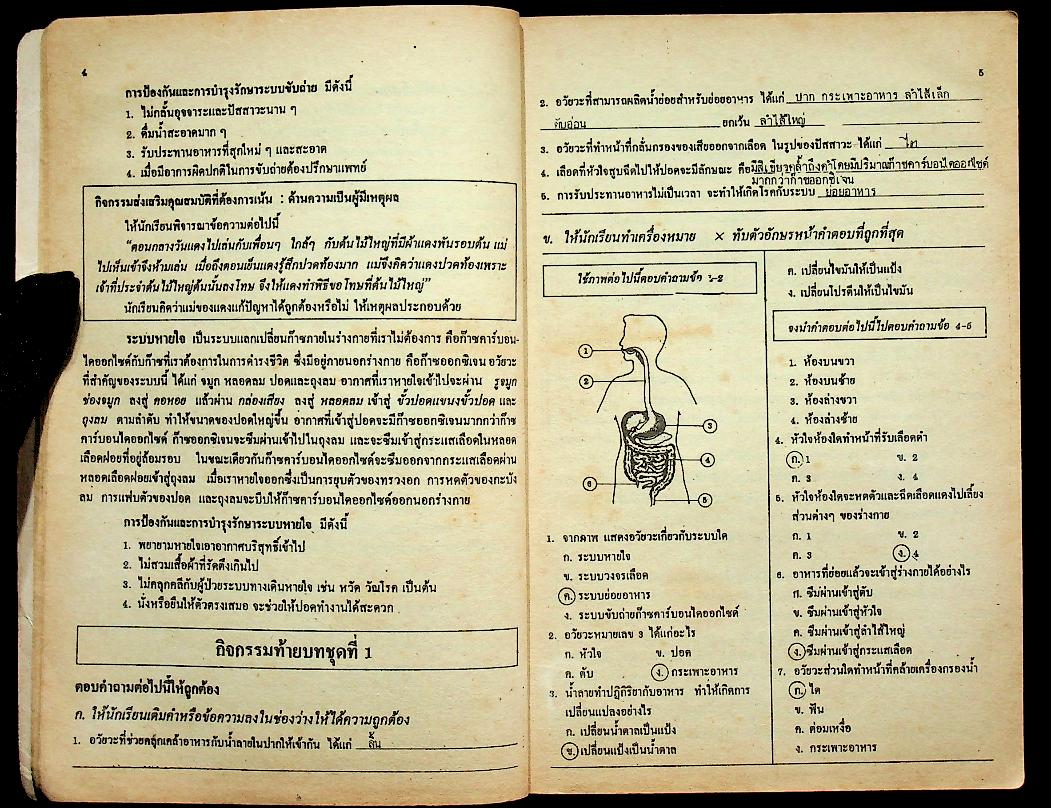 ๔
การป้องกันและการบำรุงรักษาระบบขับถ่าย มีดังนี้
1. ไม่กลั้นอุจจาระและปัสสาวะนาน ๆ
2. ดื่มน้ำสะอาดมาก ๆ
3. รับประทานอาหารที่สุกใหม่ ๆ และสะอาด
4. เมื่อมีอาการผิดปกติในการขับถ่ายต้องปรึกษาแพทย์
กิจกรรมส่งเสริมคุณสมบัติที่ต้องการเน้น : ด้านความเป็นผู้มีเหตุผล
ให้นักเรียนพิจารณาข้อความต่อไปนี้
"ตอนกลางวันแดงไปเล่นกับเพื่อนๆ ใกล้ๆ กับต้นไม้ใหญ่ที่มีผ้าแดงพันรอบต้น แม่
ไปเห็นเข้าจึงห้ามเล่น เมื่อถึงตอนเย็นแดงรู้สึกปวดท้องมาก แม่จึงคิดว่าแดงปวดท้องเพราะ
เจ้าที่ประจำต้นไม้ใหญ่ต้นนั้นลงโทษ จึงให้แดงทำพิธีขอโทษที่ต้นไม้ใหญ่"
นักเรียนคิดว่าแม่ของแดงแก้ปัญหาได้ถูกต้องหรือไม่ ให้เหตุผลประกอบด้วย
ระบบหายใจ เป็นระบบแลกเปลี่ยนก๊าซภายในร่างกายที่เราไม่ต้องการ คือก๊าซคาร์บอน-
ไดออกไซด์กับก๊าซที่เราต้องการในการดำรงชีวิต ซึ่งมีอยู่ภายนอกร่างกาย คือก๊าซออกซิเจน อวัยวะ
ที่สำคัญของระบบนี้ ได้แก่ จมูก หลอดลม ปอดและถุงลม อากาศที่เราหายใจเข้าไปจะผ่าน รูจมูก
ช่องจมูก ลงสู่ คอหอย แล้วผ่าน กล่องเสียง ลงสู่ หลอดลม เข้าสู่ ขั้วปอดแขนงขั้วปอด และ
ถุงลม ตามลำดับ ทำให้ขนาดของปอดใหญ่ขึ้น อากาศที่เข้าสู่ปอดจะมีก๊าซออกซิเจนมากกว่าก๊าซ
คาร์บอนไดออกไซด์ ก๊าซออกซิเจนจะซึมผ่านเข้าไปในถุงลม และจะซึมเข้าสู่กระแสเลือดในหลอด
เลือดฝอยที่อยู่ล้อมรอบ ในขณะเดียวกันก๊าซคาร์บอนไดออกไซด์จะซึมออกจากกระแสเลือดผ่าน
หลอดเลือดฝอยเข้าสู่ถุงลม เมื่อเราหายใจออกซึ่งเป็นการยุบตัวของทรวงอก การหดตัวของกะบัง
ลม การแฟบตัวของปอด และถุงลมจะบีบให้ก๊าซคาร์บอนไดออกไซด์ออกนอกร่างกาย
การป้องกันและการบำรุงรักษาระบบหายใจ มีดังนี้
1. พยายามหายใจเอาอากาศบริสุทธิ์เข้าไป
2. ไม่สวมเสื้อผ้าที่รัดตึงเกินไป
3. ไม่คลุกคลีกับผู้ป่วยระบบทางเดินหายใจ เช่น หวัด วัณโรค เป็นต้น
4. นั่งหรือยืนให้ตัวตรงเสมอ จะช่วยให้ปอดทำงานได้สะดวก
กิจกรรมท้ายบทชุดที่ 1
ตอบคำถามต่อไปนี้ให้ถูกต้อง
ก. ให้นักเรียนเติมคำหรือข้อความลงในช่องว่างให้ได้ความถูกต้อง
1. อวัยวะที่ช่วยคลุกเคล้าอาหารกับน้ำลายในปากให้เข้ากัน ได้แก่ ลิ้น
5
2. อวัยวะที่สามารถผลิตน้ำย่อยสำหรับย่อยอาหาร ได้แก่ ปาก กระเพาะอาหาร ลำไส้เล็ก
ตับอ่อน ยกเว้น ลำไส้ใหญ่
3. อวัยวะที่ทำหน้าที่กลั่นกรองของเสียออกจากเลือด ในรูปของปัสสาวะ ได้แก่ ไต
4. เลือดที่หัวใจสูบฉีดไปให้ปอดจะมีลักษณะ คือมีสีเขียวคล้ำถึงดำโดยมีปริมาณก๊าซคาร์บอนไดออกไซด์
มากกว่าก๊าซออกซิเจน
5. การรับประทานอาหารไม่เป็นเวลา จะทำให้เกิดโรคกับระบบ ย่อยอาหาร
ข. ให้นักเรียนทำเครื่องหมาย × ทับตัวอักษรหน้าคำตอบที่ถูกที่สุด
ใช้ภาพต่อไปนี้ตอบคำถามข้อ ๑-2
1
2
3
4
6
5
1. จากภาพ แสดงอวัยวะเกี่ยวกับระบบใด
ก. ระบบหายใจ
ข. ระบบวงจรเลือด
ค. ระบบย่อยอาหาร
ง. ระบบขับถ่ายก๊าซคาร์บอนไดออกไซด์
2. อวัยวะหมายเลข 3 ได้แก่อะไร
ก. หัวใจ ข. ปอด
ค. ตับ ง. กระเพาะอาหาร
3. น้ำลายทำปฏิกิริยากับอาหาร ทำให้เกิดการ
เปลี่ยนแปลงอย่างไร
ก. เปลี่ยนน้ำตาลเป็นแป้ง
ข. เปลี่ยนแป้งเป็นน้ำตาล
ค. เปลี่ยนไขมันให้เป็นแป้ง
ง. เปลี่ยนโปรตีนให้เป็นไขมัน
จงนำคำตอบต่อไปนี้ไปตอบคำถามข้อ 4-5
1. ห้องบนขวา
2. ห้องบนซ้าย
3. ห้องล่างขวา
4. ห้องล่างซ้าย
4. หัวใจห้องใดทำหน้าที่รับเลือดดำ
ก. 1 ข. 2
ค. 3 ง. 4
5. หัวใจห้องใดจะหดตัวและฉีดเลือดแดงไปเลี้ยง
ส่วนต่างๆ ของร่างกาย
ก. 1 ข. 2
ค. 3 ง. 4
6. อาหารที่ย่อยแล้วจะเข้าสู่ร่างกายได้อย่างไร
ก. ซึมผ่านเข้าสู่ตับ
ข. ซึมผ่านเข้าสู่หัวใจ
ค. ซึมผ่านเข้าสู่ลำไส้ใหญ่
ง. ซึมผ่านเข้าสู่กระแสเลือด
7. อวัยวะส่วนใดทำหน้าที่คล้ายเครื่องกรองน้ำ
ก. ไต
ข. ฟัน
ค. ต่อมเหงื่อ
ง. กระเพาะอาหาร